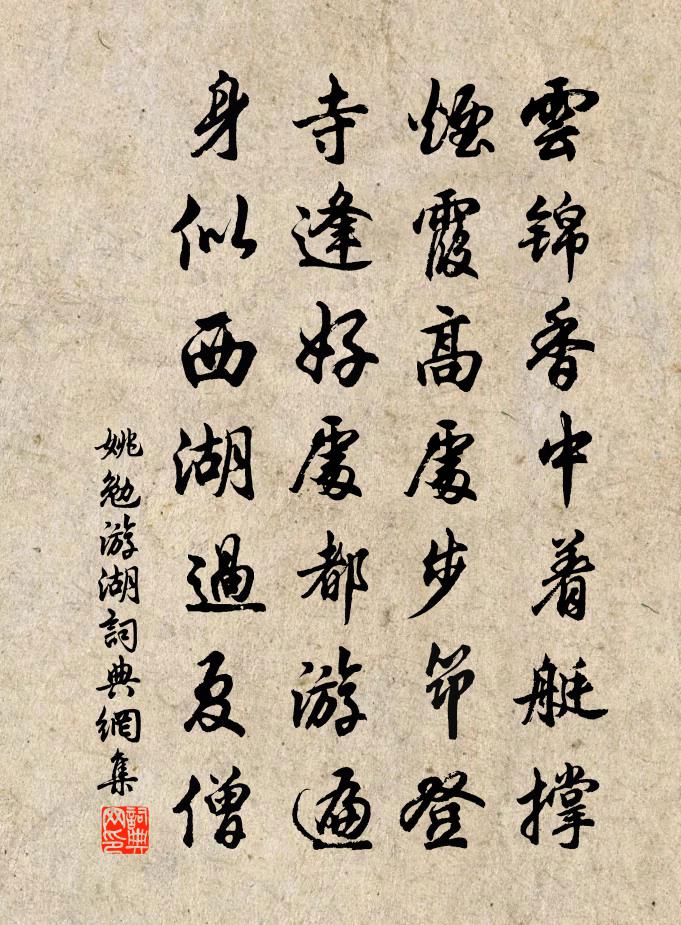 雲錦香中着艇撐
煙霞高處步筇登
寺逢好處都游遍
身似西湖過夏僧
姚勉游湖詞典網集
詞典網印